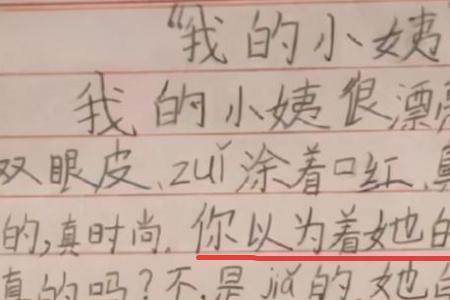 “我的小姨
我的小姨很漂亮
双眼皮、zuǐ涂着口红,鼻
的,真时尚.你以为着她的
真的吗?不,是jiǎ的,她的